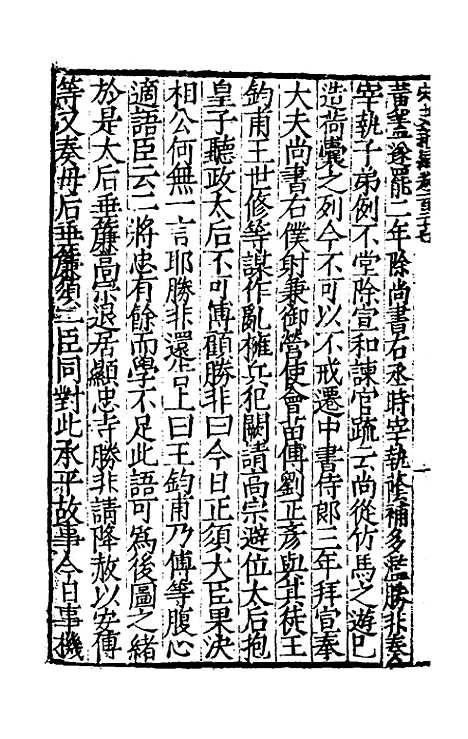 黃潛遂罷二年除尚書右丞時宰執蔭補多濫勝非奏今
宰執子弟例不堂除宣和諫官疏云尚從竹馬之遊已
造荷囊之列今不可以不戒遷中書侍郎三年拜宣奉
大夫尚書右僕射兼御營使會苗傅劉正彥與其徒王
鈞甫王世修等謀作亂擁兵犯闕請高宗避位太后抱
皇子聽政太后不可傅顧勝非曰今日正須大臣果決
相公何無一言耶勝非還告上曰王鈞甫乃傅等腹心
適語臣云二將忠有餘而學不足此語可爲後圖之緒
於是太后垂簾高宗退居顯忠寺勝非請降赦以安傅
等又奏母后垂簾須二臣同對此承平故事今日事機